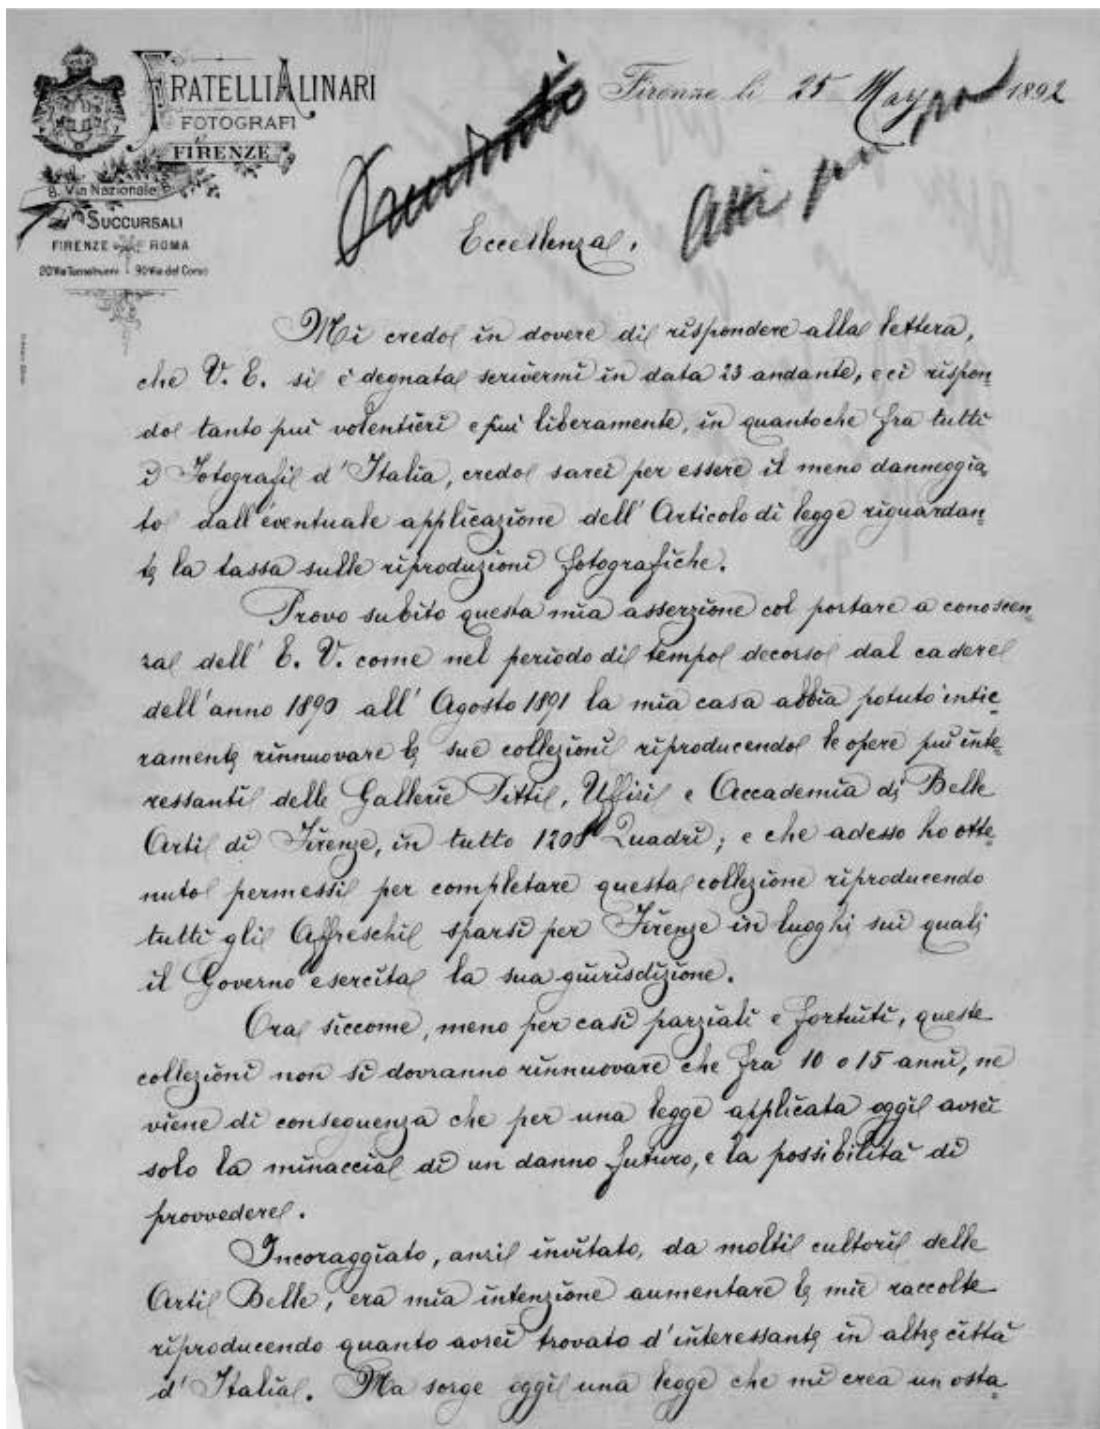 FRATELLI ALINARI
FOTOGRAFI
FIRENZE
8. Via Nazionale 8.
SUCCURSALI
FIRENZE ROMA
20 Via Tornabuoni 90 Via del Corso
Firenze li 25 Maggio 1892
Atti
Eccellenza.
Mi credo in dovere di rispondere alla lettera,
che V. E. si è degnata scrivermi in data 23 andante, e ci rispon=
do tanto più volentieri e più liberamente, in quantoche fra tutti
i Fotografi d'Italia, credo sarei per essere il meno danneggia=
to dall'eventuale applicazione dell'Articolo di legge riguardan=
te la tassa sulle riproduzioni fotografiche.
Provo subito questa mia asserzione col portare a conoscen=
za dell'E. V. come nel periodo di tempo decorso dal cadere
dell'anno 1890 all'Agosto 1891 la mia casa abbia potuto intie=
ramente rinnuovare le sue collezioni riproducendo le opere più inte=
ressanti delle Gallerie Pitti, Uffizi e Accademia di Belle
Arti di Firenze, in tutto 1208 Quadri; e che adesso ho otte=
nuto permessi per completare questa collezione riproducendo
tutti gli Affreschi sparsi per Firenze in luoghi sui quali
il Governo esercita la sua giurisdizione.
Ora siccome, meno per casi parziali e fortuiti, queste
collezioni non si dovranno rinnuovare che fra 10 o 15 anni, ne
viene di conseguenza che per una legge applicata oggi avrei
solo la minaccia di un danno futuro, e la possibilità di
provvedere.
Incoraggiato, anzi invitato, da molti cultori delle
Arti Belle, era mia intenzione aumentare le mie raccolte
riproducendo quanto avrei trovato d'interessante in altre città
d'Italia. Ma sorge oggi una legge che mi crea un osta=